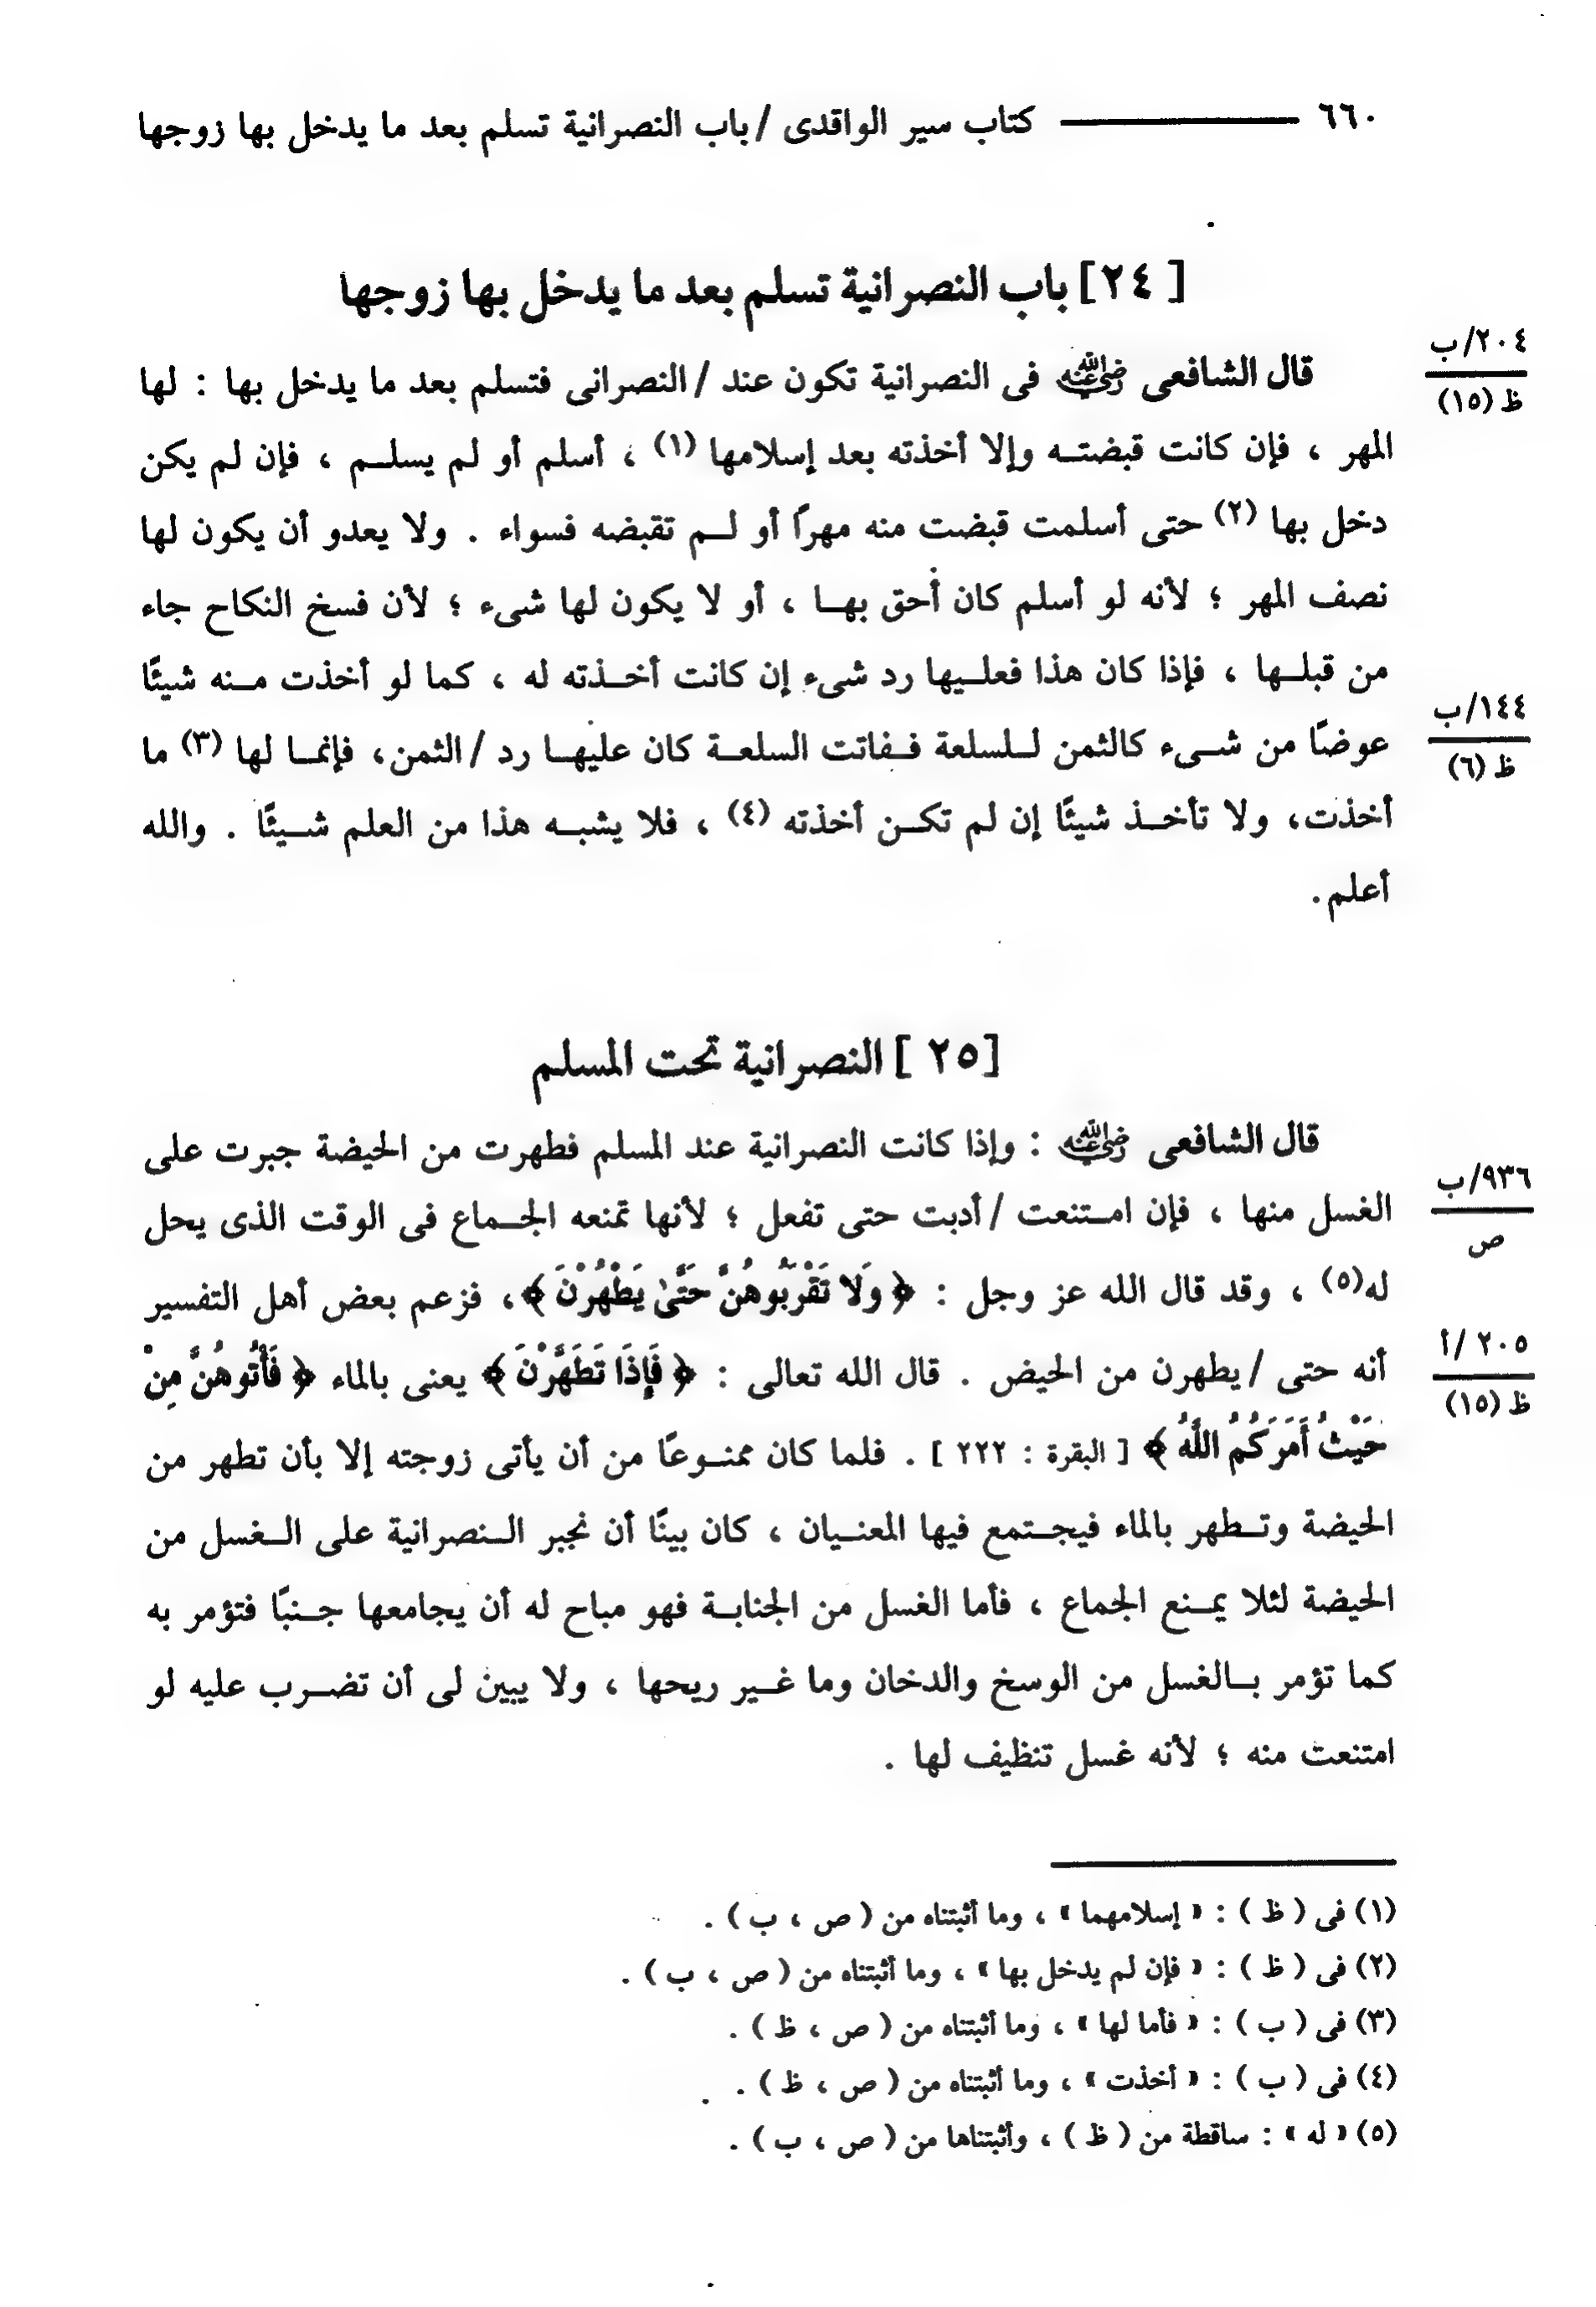 ٦٦٠ ــــــــ كتاب سير الواقدى / باب النصرانية تسلم بعد ما يدخل بها زوجها
[٢٤] باب النصرانية تسلم بعد ما يدخل بها زوجها
٢٠٤/ب
ظ (١٥)
قال الشافعى رضي الله عنه فى النصرانية تكون عند / النصرانى فتسلم بعد ما يدخل بها : لها
المهر ، فإن كانت قبضتـه وإلا أخذته بعد إسلامها (١) ، أسلم أو لم يسلـم ، فإن لم يكن
دخل بها (٢) حتى أسلمت قبضت منه مهرًا أو لـم تقبضه فسواء . ولا يعدو أن يكون لها
نصف المهر ؛ لأنه لو أسلم كان أحق بهـا ، أو لا يكون لها شىء ؛ لأن فسخ النكاح جاء
من قبلـها ، فإذا كان هذا فعلـيها رد شىء إن كانت أخـذته له ، كما لو أخذت مـنه شيئًا
١٤٤/ب
ظ (٦)
عوضًا من شـىء كالثمن لـلسلعة فـفاتت السلعـة كان عليهـا رد / الثمن، فإنمـا لها (٣) ما
أخذت، ولا تأخـذ شيئًا إن لم تكـن أخذته (٤) ، فلا يشبـه هذا من العلم شـيئًا . والله
أعلم.
[٢٥] النصرانية تحت المسلم
قال الشافعى رضي الله عنه : وإذا كانت النصرانية عند المسلم فطهرت من الحيضة جبرت على
٩٣٦/ب
ص
الغسل منها ، فإن امـتنعت / أدبت حتى تفعل ؛ لأنها تمنعه الجـماع فى الوقت الذى يحل
له(٥) ، وقد قال الله عز وجل : ﴿ وَلا تَقْرَبُوهُنَّ حَتَّىٰ يَطْهُرْنَ ﴾، فزعم بعض أهل التفسير
٢٠٥/أ
ظ (١٥)
أنه حتى / يطهرن من الحيض . قال الله تعالى : ﴿ فَإِذَا تَطَهَّرْنَ ﴾ يعنى بالماء ﴿ فَأْتُوهُنَّ مِنْ
حَيْثُ أَمَرَكُمُ اللَّهُ ﴾ [ البقرة : ٢٢٢ ] . فلما كان ممنـوعًا من أن يأتى زوجته إلا بأن تطهر من
الحيضة وتـطهر بالماء فيجـتمع فيها المعنـيان ، كان بينًا أن نجبر الـنصرانية على الـغسل من
الحيضة لئلا يمـنع الجماع ، فأما الغسل من الجنابـة فهو مباح له أن يجامعها جـنبًا فتؤمر به
كما تؤمر بـالغسل من الوسخ والدخان وما غـير ريحها ، ولا يبين لى أن تضـرب عليه لو
امتنعت منه ؛ لأنه غسل تنظيف لها .
(١) فى ( ظ ) : « إسلامهما » ، وما أثبتناه من ( ص ، ب ) .
(٢) فى ( ظ ) : « فإن لم يدخل بها » ، وما أثبتناه من ( ص ، ب ) .
(٣) فى ( ب ) : « فأما لها » ، وما أثبتناه من ( ص ، ظ ) .
(٤) فى ( ب ) : « أخذت » ، وما أثبتناه من ( ص ، ظ ) .
(٥) « له » : ساقطة من ( ظ ) ، وأثبتناها من ( ص ، ب ) .